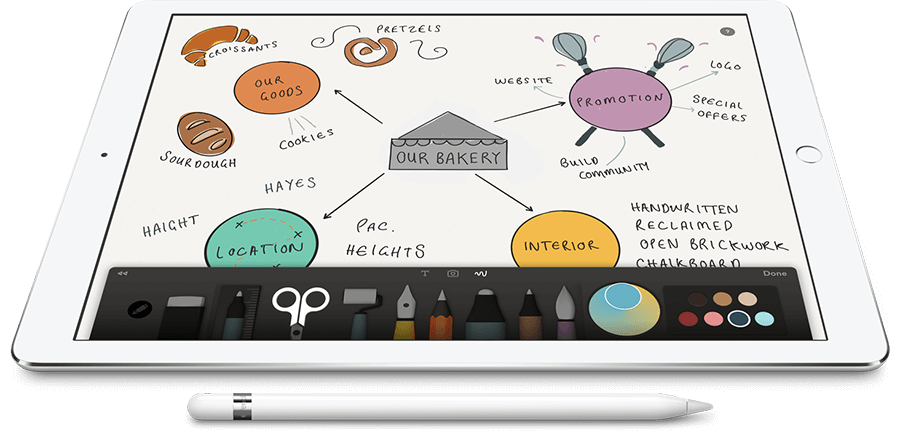 CROISSANTS
PRETZELS
?
OUR
GOODS
COOKIES
SOURDOUGH
OUR BAKERY
WEBSITE
PROMOTION
LOGO
SPECIAL
OFFERS
BUILD
COMMUNITY
HAYES
HAIGHT
LOCATION
PAC.
HEIGHTS
INTERIOR
HANDWRITTEN
RECLAIMED
OPEN BRICKWORK
CHALKBOARD
T
Done